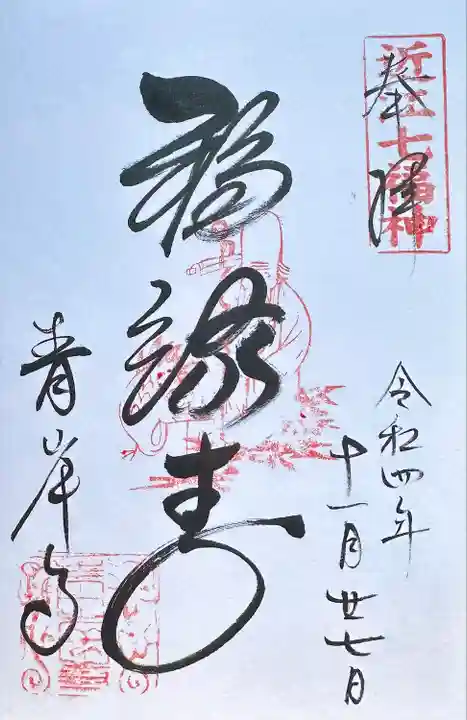 近江七福神
奉拝
令和四年
十一月廿七日
福禄寿
青岸寺